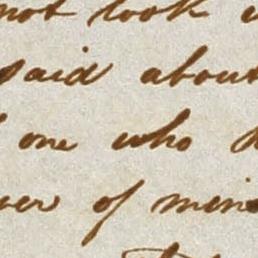 not look
said about
one who
of mine